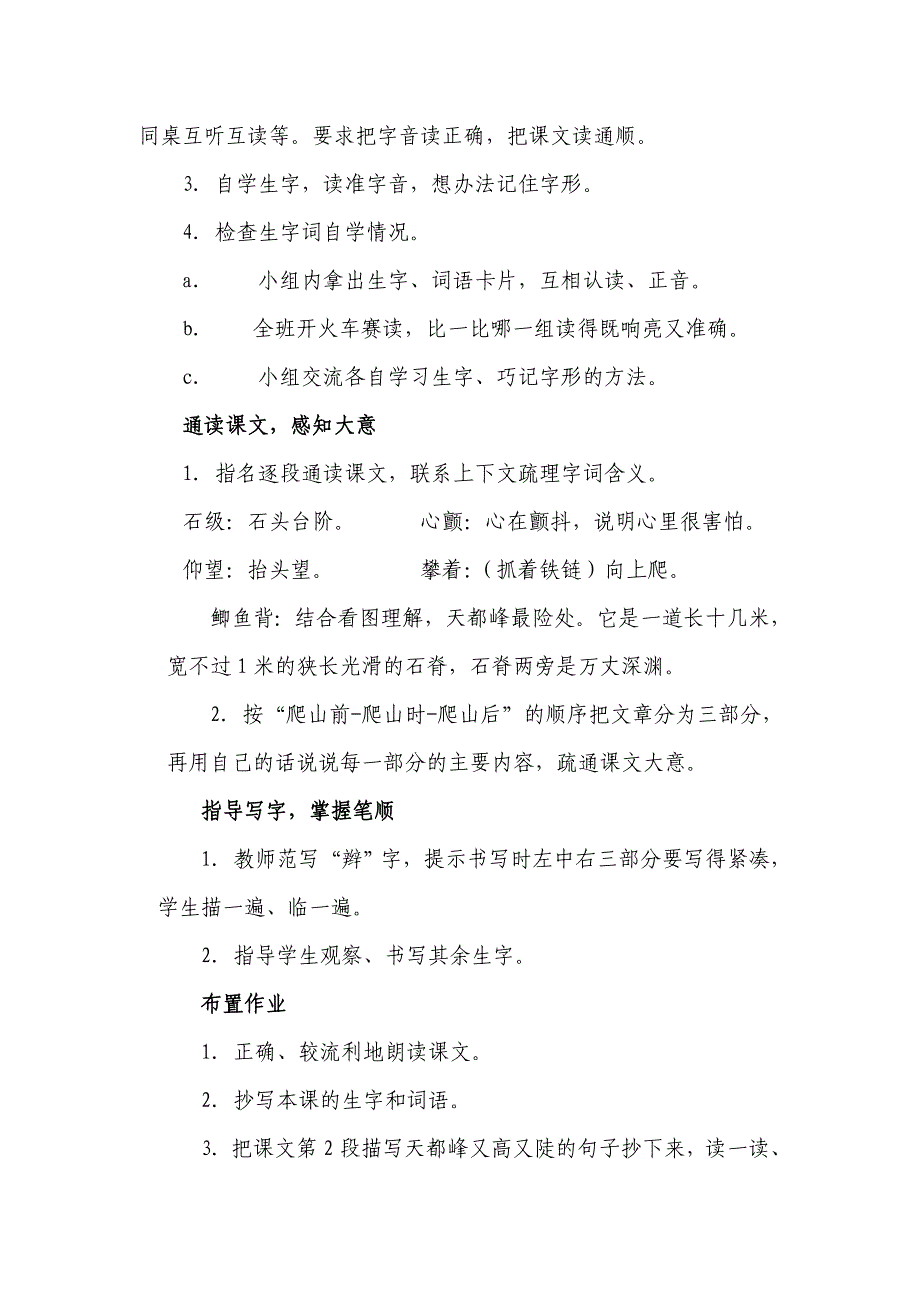 同桌互听互读等。要求把字音读正确，把课文读通顺。
3．自学生字，读准字音，想办法记住字形。
4．检查生字词自学情况。
a．　　小组内拿出生字、词语卡片，互相认读、正音。
b．　　全班开火车赛读，比一比哪一组读得既响亮又准确。
c．　　小组交流各自学习生字、巧记字形的方法。
通读课文，感知大意
1．指名逐段通读课文，联系上下文疏理字词含义。
石级：石头台阶。　　　心颤：心在颤抖，说明心里很害怕。
仰望：抬头望。　　　　攀着：（抓着铁链）向上爬。
鲫鱼背：结合看图理解，天都峰最险处。它是一道长十几米，
宽不过1米的狭长光滑的石脊，石脊两旁是万丈深渊。
2．按“爬山前-爬山时-爬山后”的顺序把文章分为三部分，
再用自己的话说说每一部分的主要内容，疏通课文大意。
指导写字，掌握笔顺
1．教师范写“辫”字，提示书写时左中右三部分要写得紧凑，
学生描一遍、临一遍。
2．指导学生观察、书写其余生字。
布置作业
1．正确、较流利地朗读课文。
2．抄写本课的生字和词语。
3．把课文第2段描写天都峰又高又陡的句子抄下来，读一读、